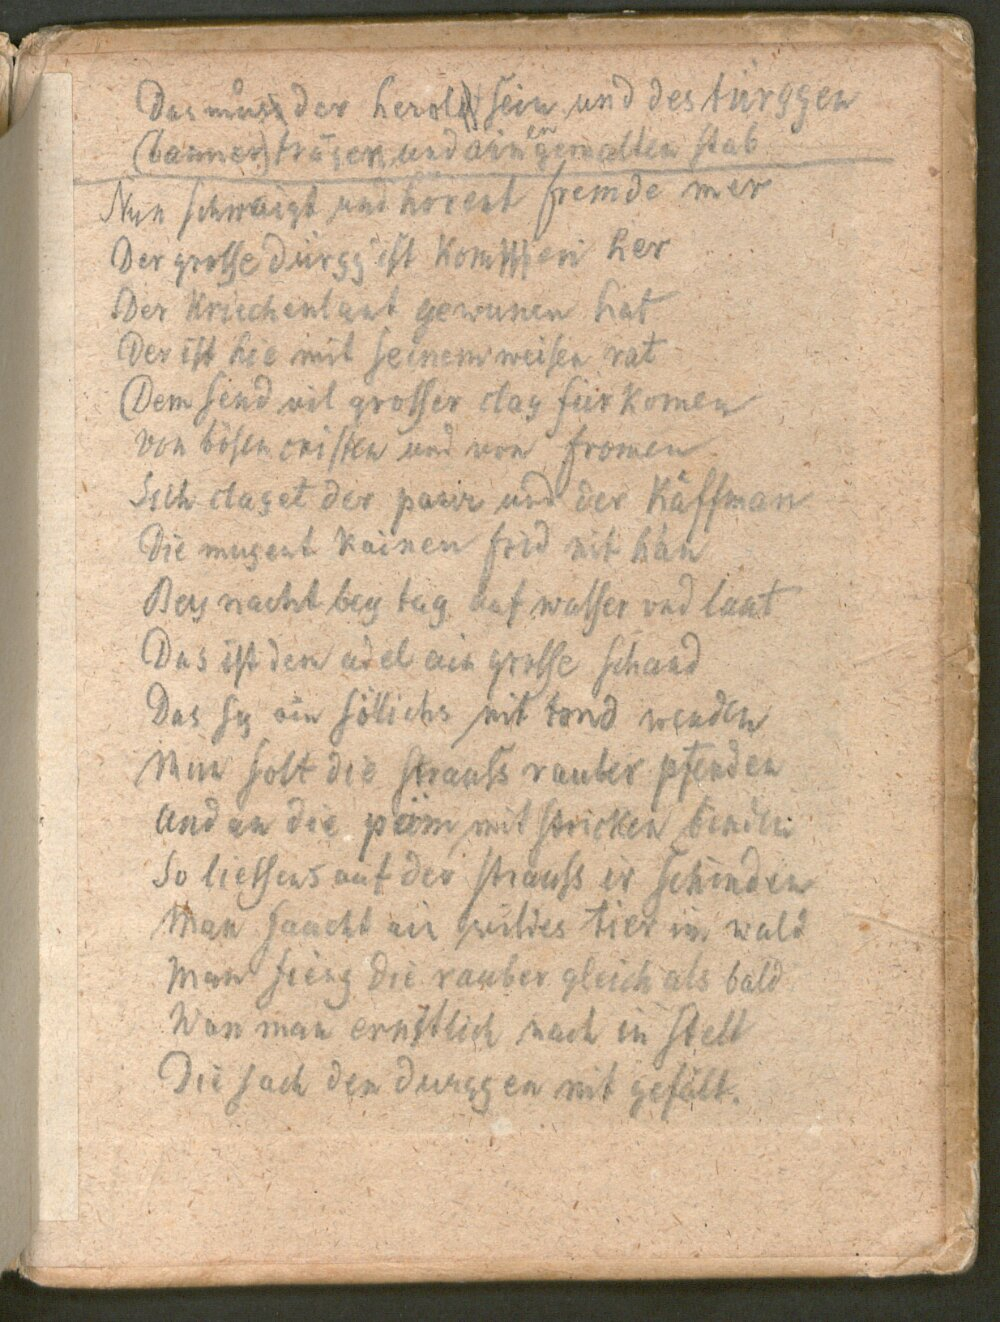 Das muͦs der herold sein und des türggen
(banner) tragen und ain gemalten stab
Nun schwaigt und hörent fremde mer
Der grosse dürgg ist komen her
Der Kriechenlant gewunen hat
Der ist hie mit seinem weisen rat
Dem send vil grosser clag für komen
von bösen cristen und von fromen
Sich claget der paur und der Kaffman
Die mugent kainen frid nit hán
Bey nacht bey tag auf wasser und lant
Das ist dem adel ain grosse schand
Das sy ain söllichs nit tond wenden
Man solt die strauss rauber pfenden
And an die päm mit stricken binden
So liessens auf der strauss ir schinden
Man facht ain wildes tier im wald
Man fieng die rauber gleich als bald
Wan man ernstlich nach in stelt
Die sach den durggen nit gefält.